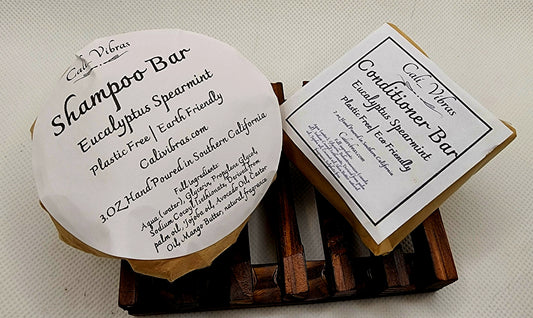 Cali Vibras
Shampoo Bar
Eucalyptus Spearmint
Plastic Free| Earth Friendly
Calivibras.com
3.OZ.Hand Poured in Southern California
Full Ingredients:
Aqua (water), Glycerin, Propylene Glycol,
Sodium Cocoyl Isethionate, Derived from
palm oil, Jojoba oil, Avocado Oil, Castor
Oil, Mango Butter, natural fragrance
Cali Vibras
Conditioner Bar
Eucalyptus Spearmint
Plastic Free| Eco Friendly
Hand Poured in Southern California
Calivibras.com